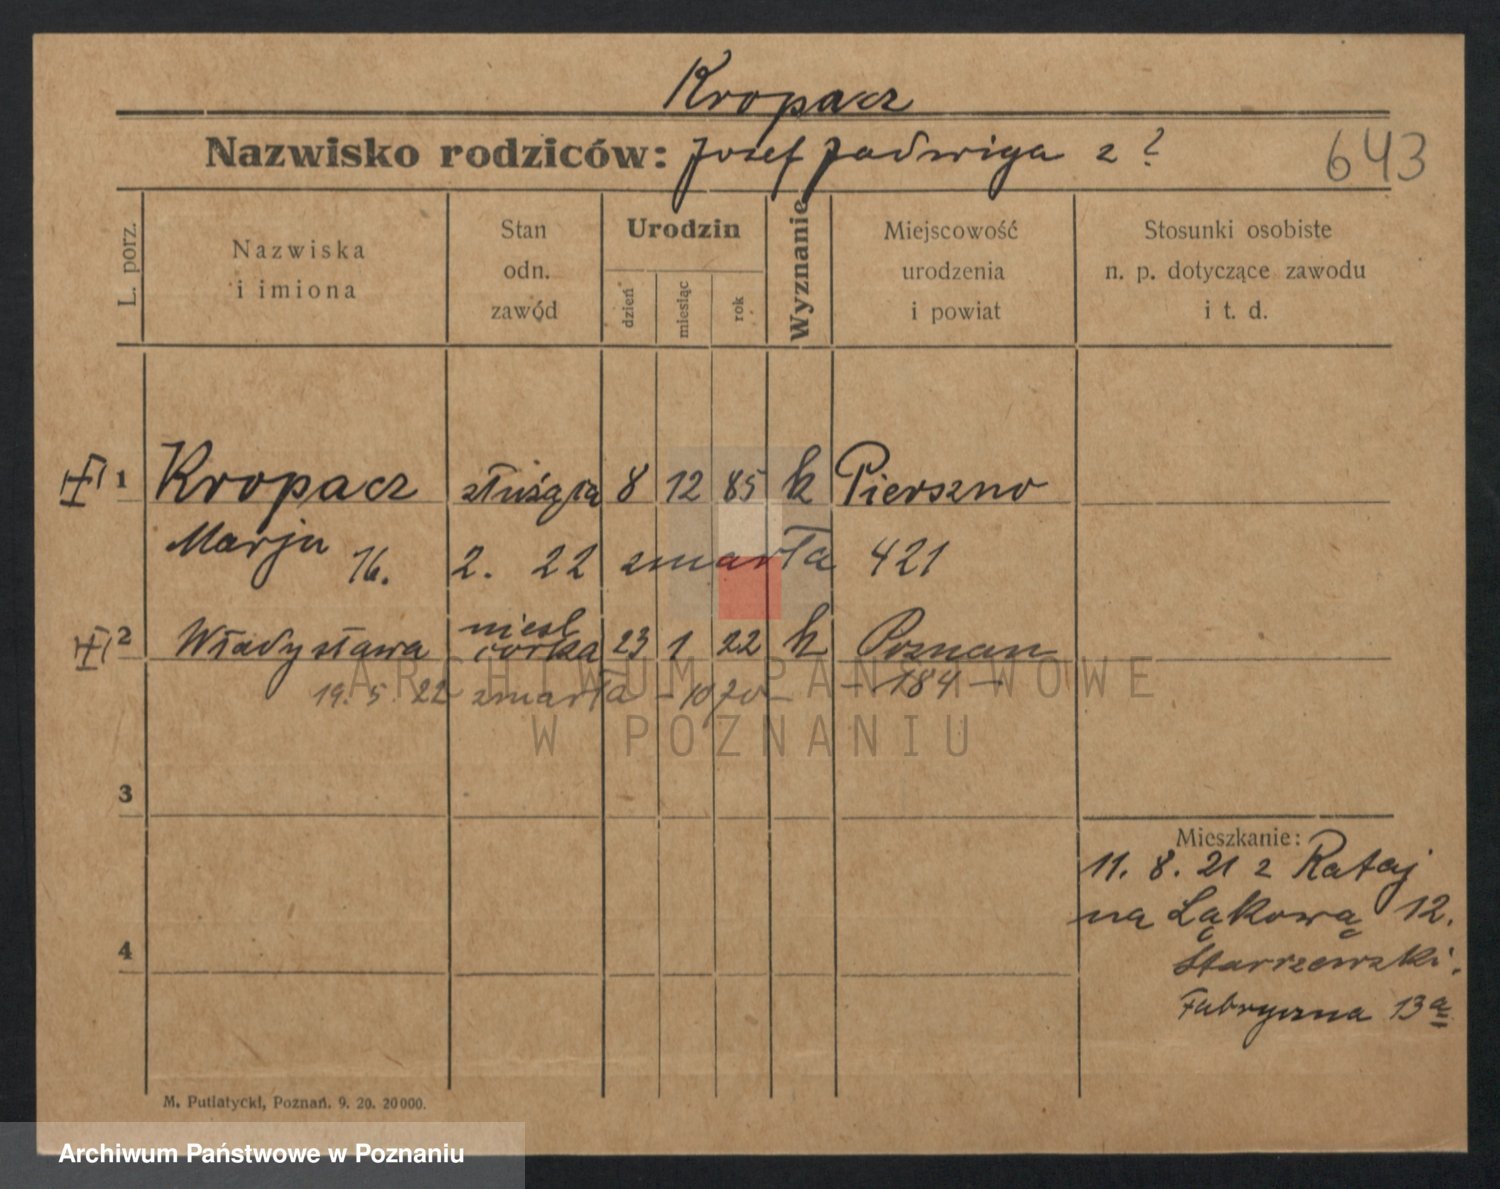 Kropacz
Nazwisko rodziców: Josef Jadwiga z ?
643
L. porz.
Nazwiska
i imiona
Stan
odn.
zawód
Urodzin
dzień
miesiąc
rok
Wyznanie
Miejscowość
urodzenia
i powiat
Stosunki osobiste
n. p. dotyczące zawodu
i t. d.
1 Kropacz służąca 8 12 85 k Pierszno
Marja 16. 2. 22 zmarła 421
2 Władysława niesl córka 23 1 22 k Poznan
19. 5. 22 zmarła - - 184 -
ARCHIWUM PAŃSTWOWE
W POZNANIU
3
Mieszkanie:
11. 8. 21 z Rataj
na Łąkową 12.
4
Starzewski.
Fabryczna 13a
M. Putiatycki, Poznań. 9. 20. 20000.
Archiwum Państwowe w Poznaniu